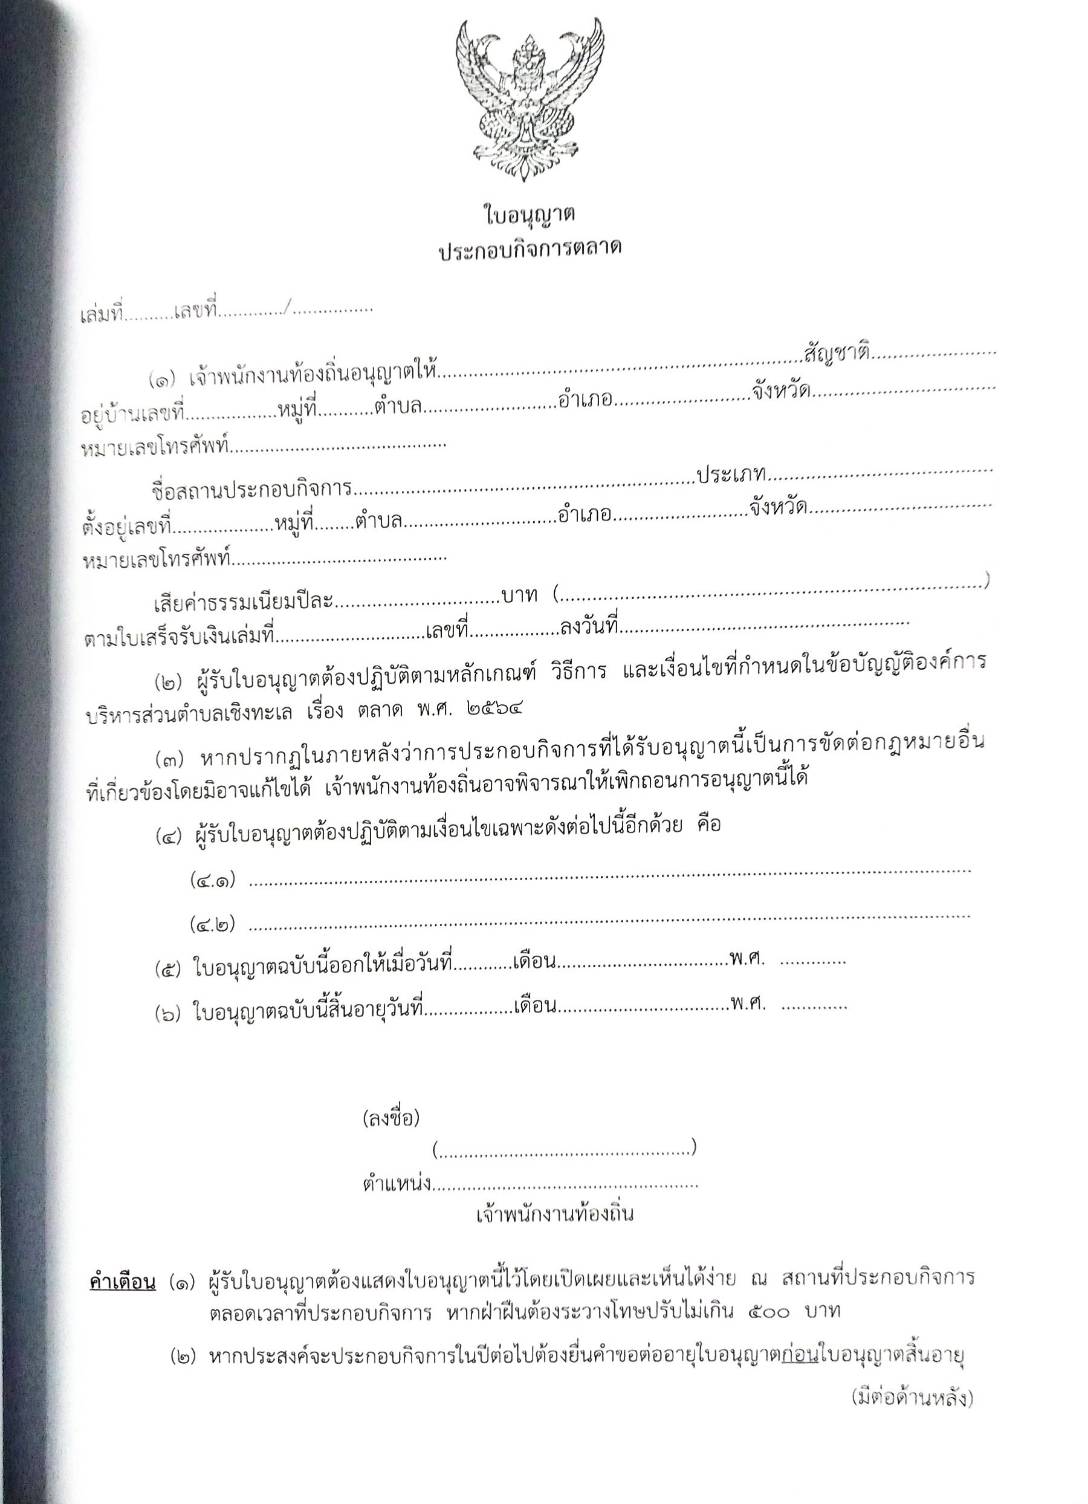 ใบอนุญาต
ประกอบกิจการตลาด
เล่มที่..........เลขที่............./................
(๑) เจ้าพนักงานท้องถิ่นอนุญาตให้........................................................................สัญชาติ.........................
อยู่บ้านเลขที่..................หมู่ที่...........ตำบล..........................อำเภอ...........................จังหวัด.....................................
หมายเลขโทรศัพท์...........................................
ชื่อสถานประกอบกิจการ...................................................................ประเภท.............................................
ตั้งอยู่เลขที่....................หมู่ที่........ตำบล..............................อำเภอ...........................จังหวัด.....................................
หมายเลขโทรศัพท์...........................................
เสียค่าธรรมเนียมปีละ.................................บาท (....................................................................................)
ตามใบเสร็จรับเงินเล่มที่..............................เลขที่..................ลงวันที่..........................................................
(๒) ผู้รับใบอนุญาตต้องปฏิบัติตามหลักเกณฑ์ วิธีการ และเงื่อนไขที่กำหนดในข้อบัญญัติองค์การ
บริหารส่วนตำบลเชิงทะเล เรื่อง ตลาด พ.ศ. ๒๕๖๔
(๓) หากปรากฏในภายหลังว่าการประกอบกิจการที่ได้รับอนุญาตนี้เป็นการขัดต่อกฎหมายอื่น
ที่เกี่ยวข้องโดยมิอาจแก้ไขได้ เจ้าพนักงานท้องถิ่นอาจพิจารณาให้เพิกถอนการอนุญาตนี้ได้
(๔) ผู้รับใบอนุญาตต้องปฏิบัติตามเงื่อนไขเฉพาะดังต่อไปนี้อีกด้วย คือ
(๔.๑) ................................................................................................................................................
(๔.๒) ................................................................................................................................................
(๕) ใบอนุญาตฉบับนี้ออกให้เมื่อวันที่............เดือน..................................พ.ศ. .............
(๖) ใบอนุญาตฉบับนี้สิ้นอายุวันที่..................เดือน..................................พ.ศ. .............
(ลงชื่อ)
(..................................................)
ตำแหน่ง.....................................................
เจ้าพนักงานท้องถิ่น
คำเตือน (๑) ผู้รับใบอนุญาตต้องแสดงใบอนุญาตนี้ไว้โดยเปิดเผยและเห็นได้ง่าย ณ สถานที่ประกอบกิจการ
ตลอดเวลาที่ประกอบกิจการ หากฝ่าฝืนต้องระวางโทษปรับไม่เกิน ๕๐๐ บาท
(๒) หากประสงค์จะประกอบกิจการในปีต่อไปต้องยื่นคำขอต่ออายุใบอนุญาตก่อนใบอนุญาตสิ้นอายุ
(มีต่อด้านหลัง)